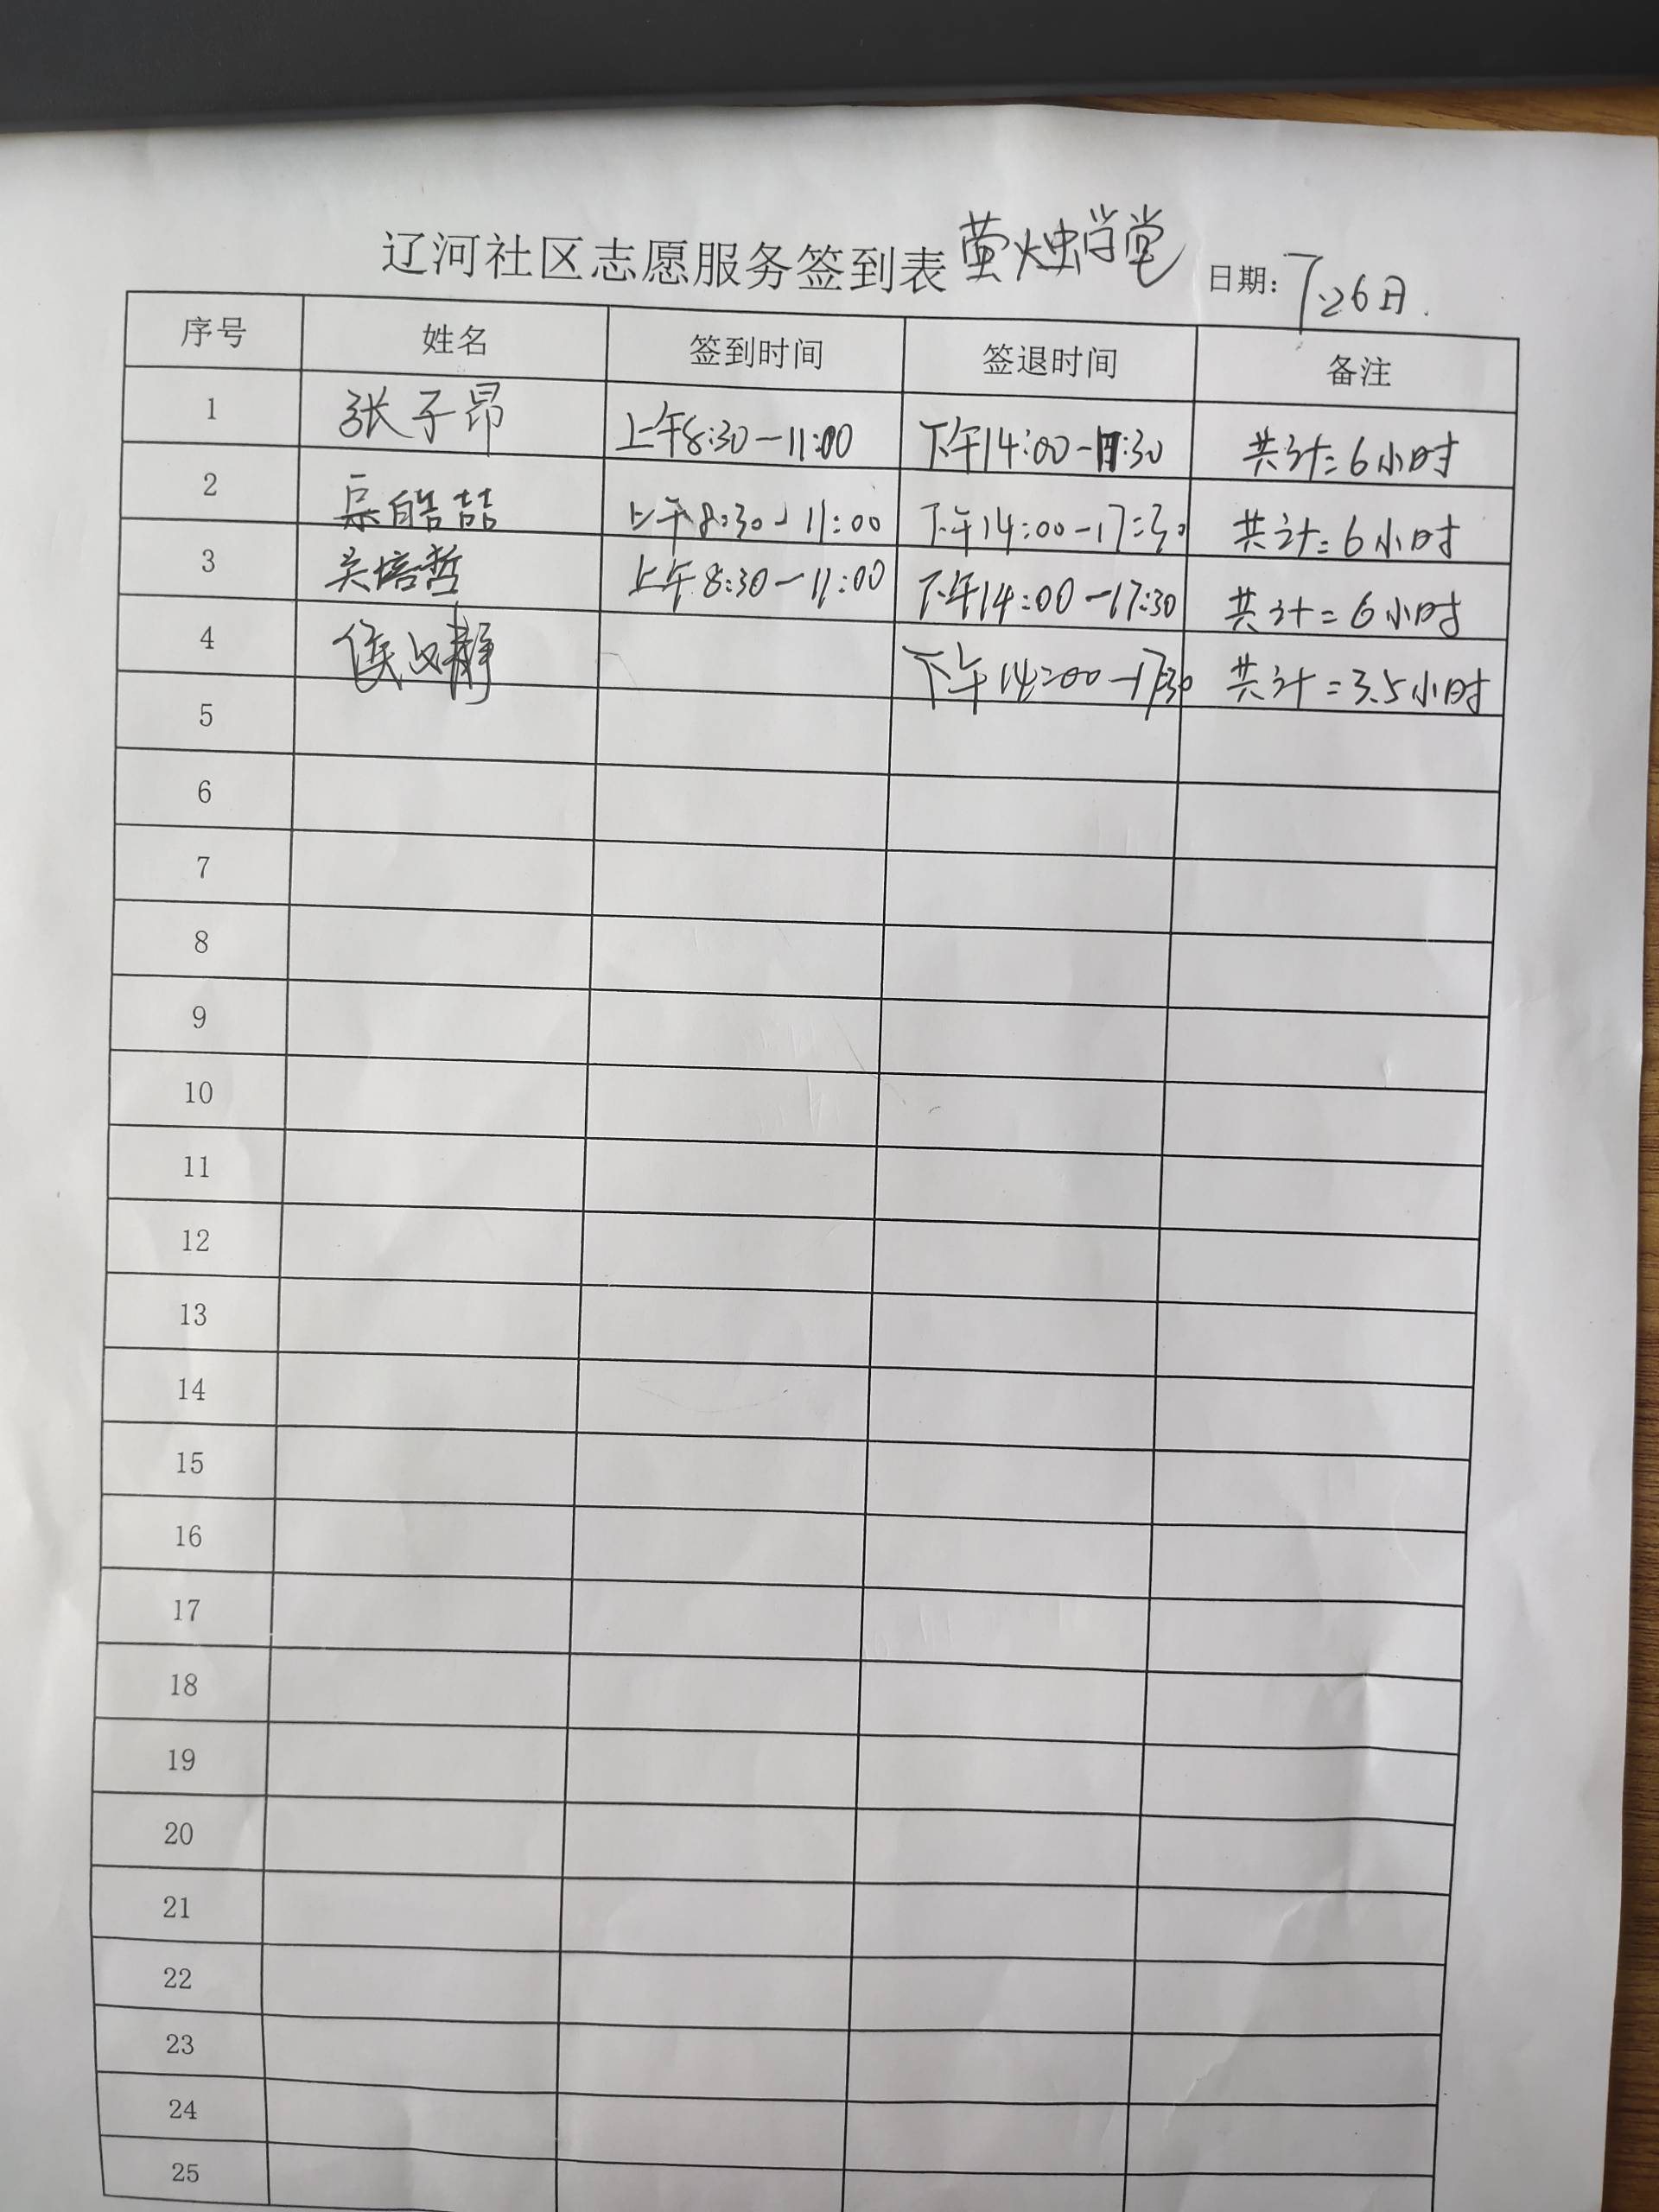 辽河社区志愿服务签到表 萤烛学堂 日期: 7.26日.
序号 姓名 签到时间 签退时间 备注
1 张子昂 上午8:30-11:00 下午14:00-17:30 共计=6小时
2 皓喆 上午8:30-11:00 下午14:00-17:30 共计=6小时
3 吴培哲 上午8:30-11:00 下午14:00-17:30 共计=6小时
4 侯 静 下午14:00-17:30 共计=3.5小时
5
6
7
8
9
10
11
12
13
14
15
16
17
18
19
20
21
22
23
24
25